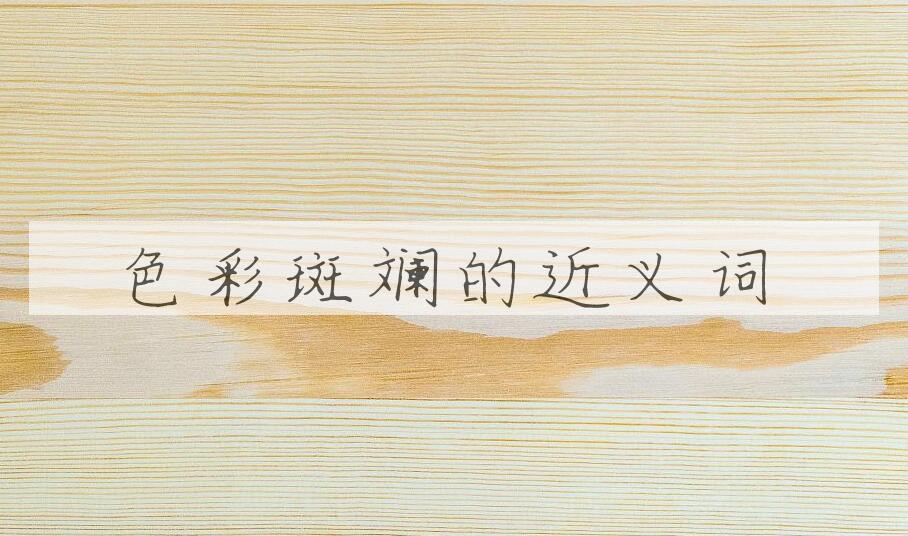 色彩斑斓的近义词